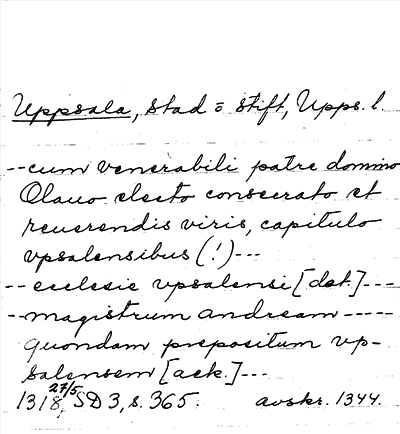 Uppsala, stad o stift, Upps. l.
--cum venerabili patre domino
Olauo electo consecrato et
reuerendis viris, capitulo
vpsalensibus (!)---
-- ecclesie vpsalensi [dat.]---
--magistrum andream -----
quondam prepositum vp-
salensem [ack.]---
1318 27/5, SD 3, s. 365. avskr. 1344.